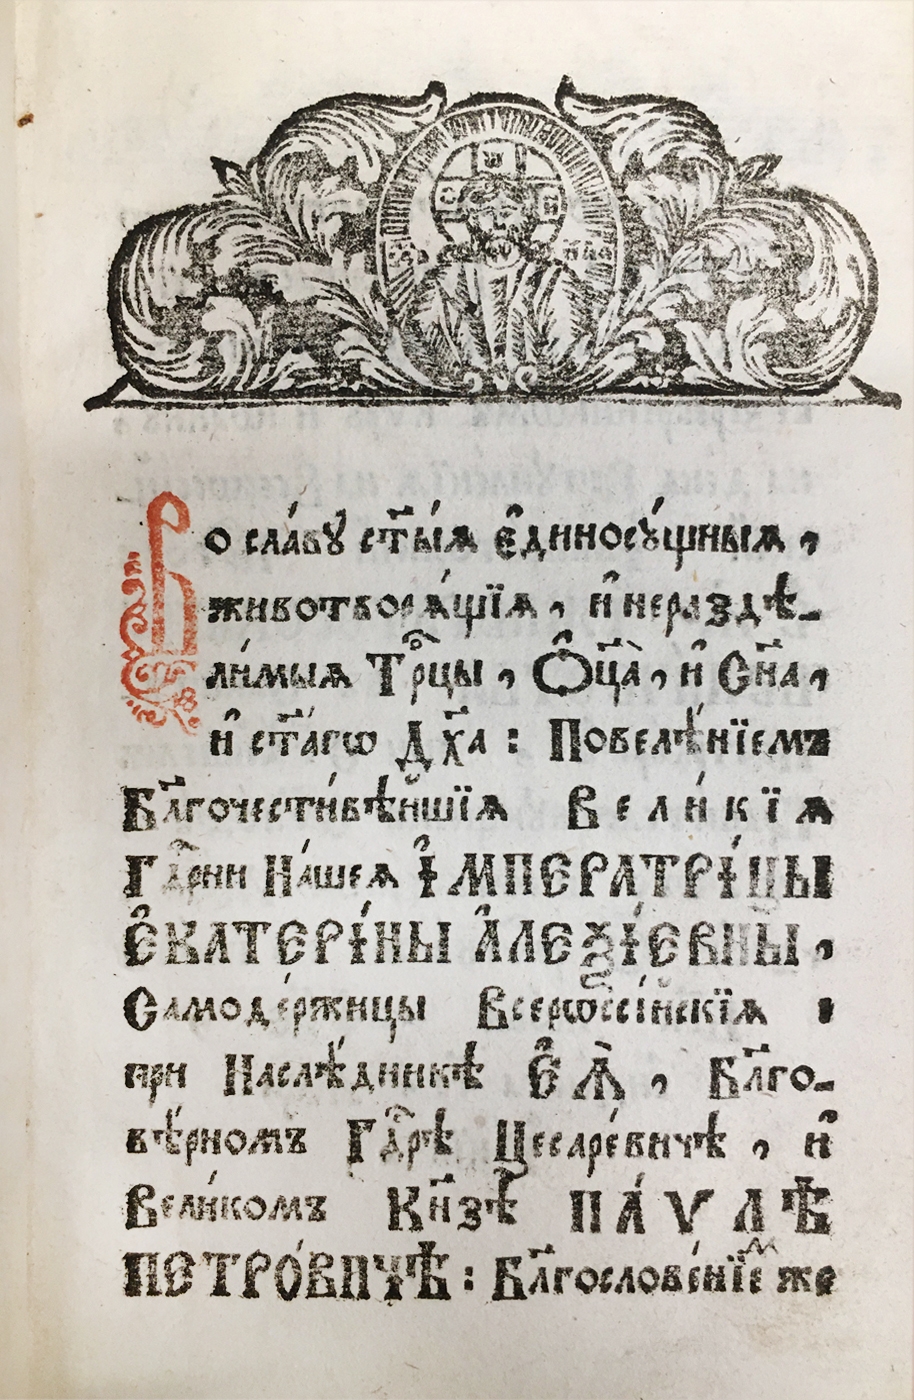 Во сла́вꙋ ст҃ы́ѧ є҆диносꙋ́щныѧ,
животворѧ́щїѧ, и҆ нераздѣ-
ли́мыѧ Трⷪ҇цы, Ѻ҆ц҃а̀, и҆ Сн҃а,
и҆ ст҃а́гѡ Дх҃а: Повелѣ́нїемъ
Бл҃гочести́вѣйшїѧ Вели́кїѧ
Гдⷭ҇рни На́шеѧ І҆МПЕРАТРІ́ЦЫ
Е҆КАТЕРІ́НЫ А҆ЛЕѮІ́ЕВНЫ,
Самоде́ржицы Всерѡссі́йскїѧ,
при Наслѣ́дникѣ Е҆Ѧ̀, Бл҃го-
вѣ́рномъ Гдⷭ҇рѣ Цесаре́вичѣ, и҆
Вели́комъ Кн҃зѣ ПА́ѴЛѢ
ПЕТРО́ВИЧѢ: Бл҃гослове́нїемⸯ же